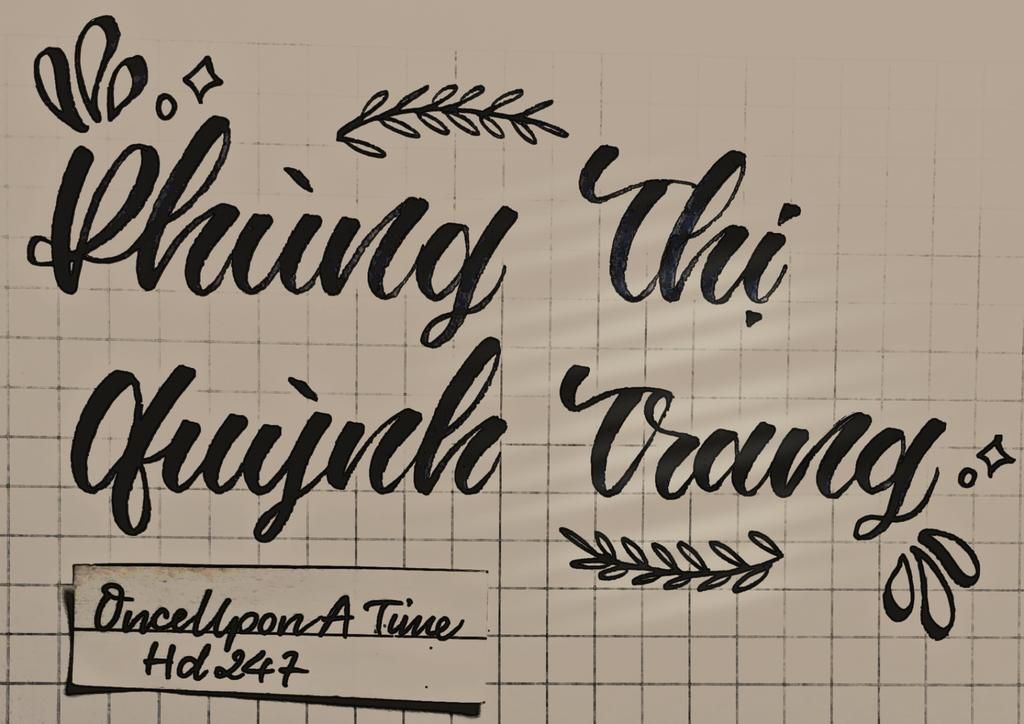 Phùng Thị
Quỳnh Trang
OnceUpon A Time
Hd 247